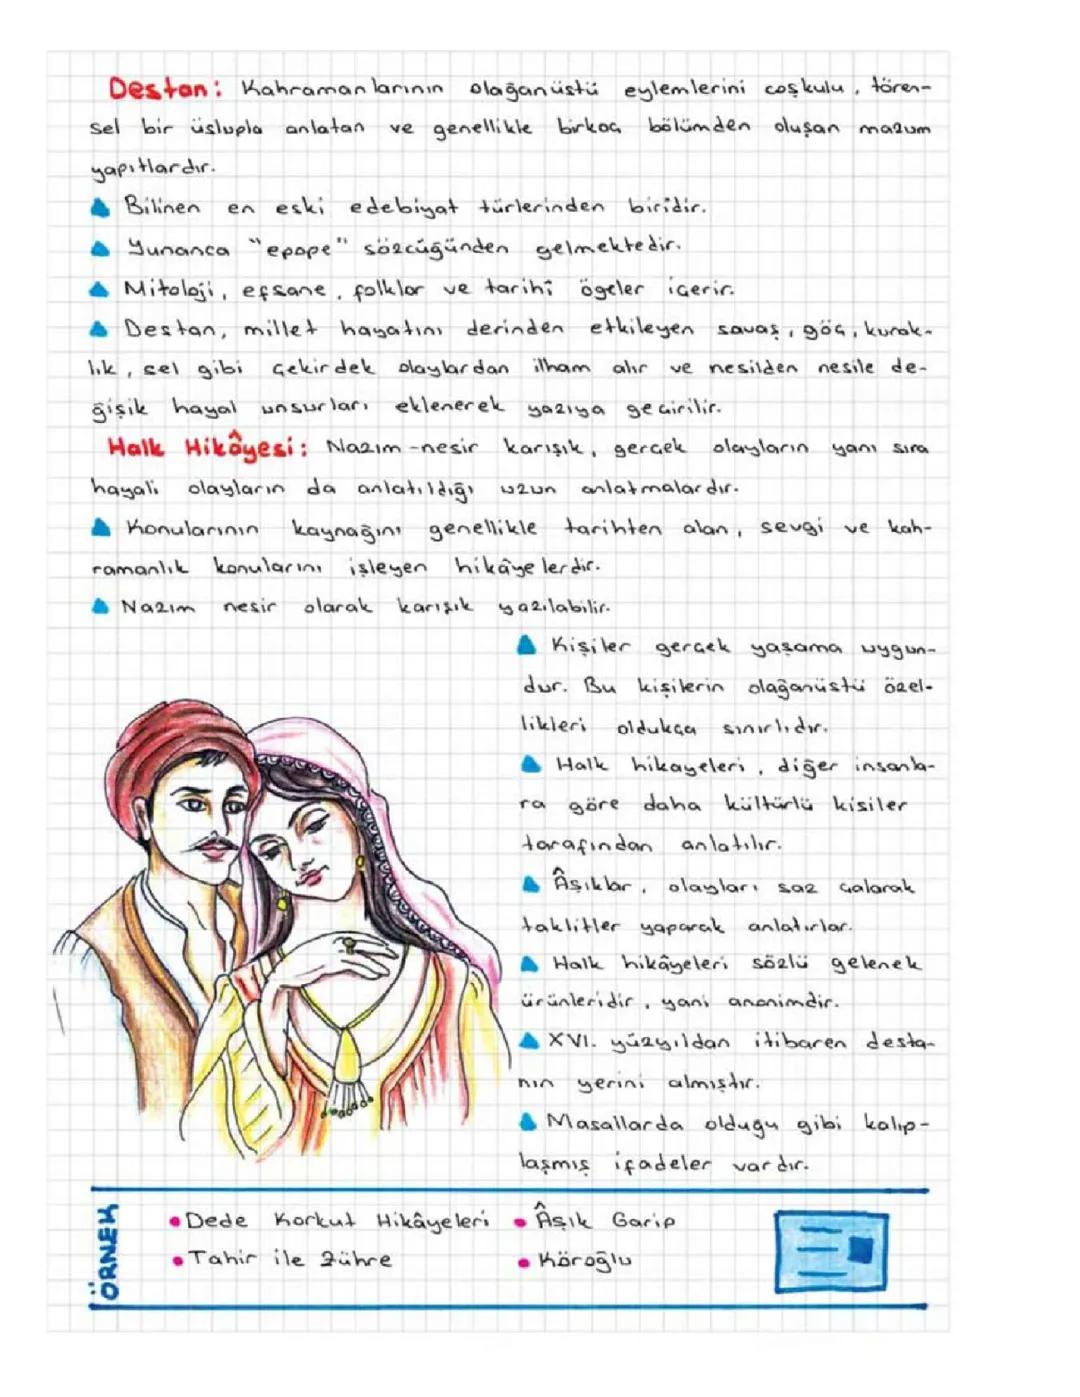 Destan: Kahramanlarının olağanüstü eylemlerini coşkulu, tören-
sel bir üslupla anlatan ve genellikle birkaç bölümden oluşan mazum
yapıtlardır.
Bilinen en eski edebiyat türlerinden biridir.
Yunanca "epope" sözcüğünden gelmektedir.
Mitoloji, efsane, folklor ve tarihî ögeler içerir.
Destan, millet hayatını derinden etkileyen savaş, göç, kurak-
lık, sel gibi çekirdek olaylardan ilham alır ve nesilden nesile de-
ğişik hayal unsurları eklenerek yazıya geçirilir.
Halk Hikâyesi: Nazım-nesir karışık, gerçek olayların yanı sıra
hayali olayların da anlatıldığı uzun anlatmalardır.
Konularının kaynağını genellikle tarihten alan, sevgi ve kah-
ramanlık konularını işleyen hikâyelerdir.
Nazım nesir olarak karışık yazılabilir.
Kişiler gerçek yaşama uygun-
dur. Bu kişilerin olağanüstü özel-
likleri oldukça sınırlıdır.
Halk hikayeleri, diğer insanla-
ra göre daha kültürlü kişiler
tarafından anlatılır.
Âşıklar, olayları saz çalarak
taklitler yaparak anlatırlar.
Halk hikâyeleri sözlü gelenek
ürünleridir, yani anonimdir.
XVI. yüzyıldan itibaren desta-
nın yerini almıştır.
Masallarda olduğu gibi kalıp-
laşmış ifadeler vardır.
ÖRNEK
• Dede Korkut Hikâyeleri • Âşık Garip
• Tahir ile Zühre • Köroğlu